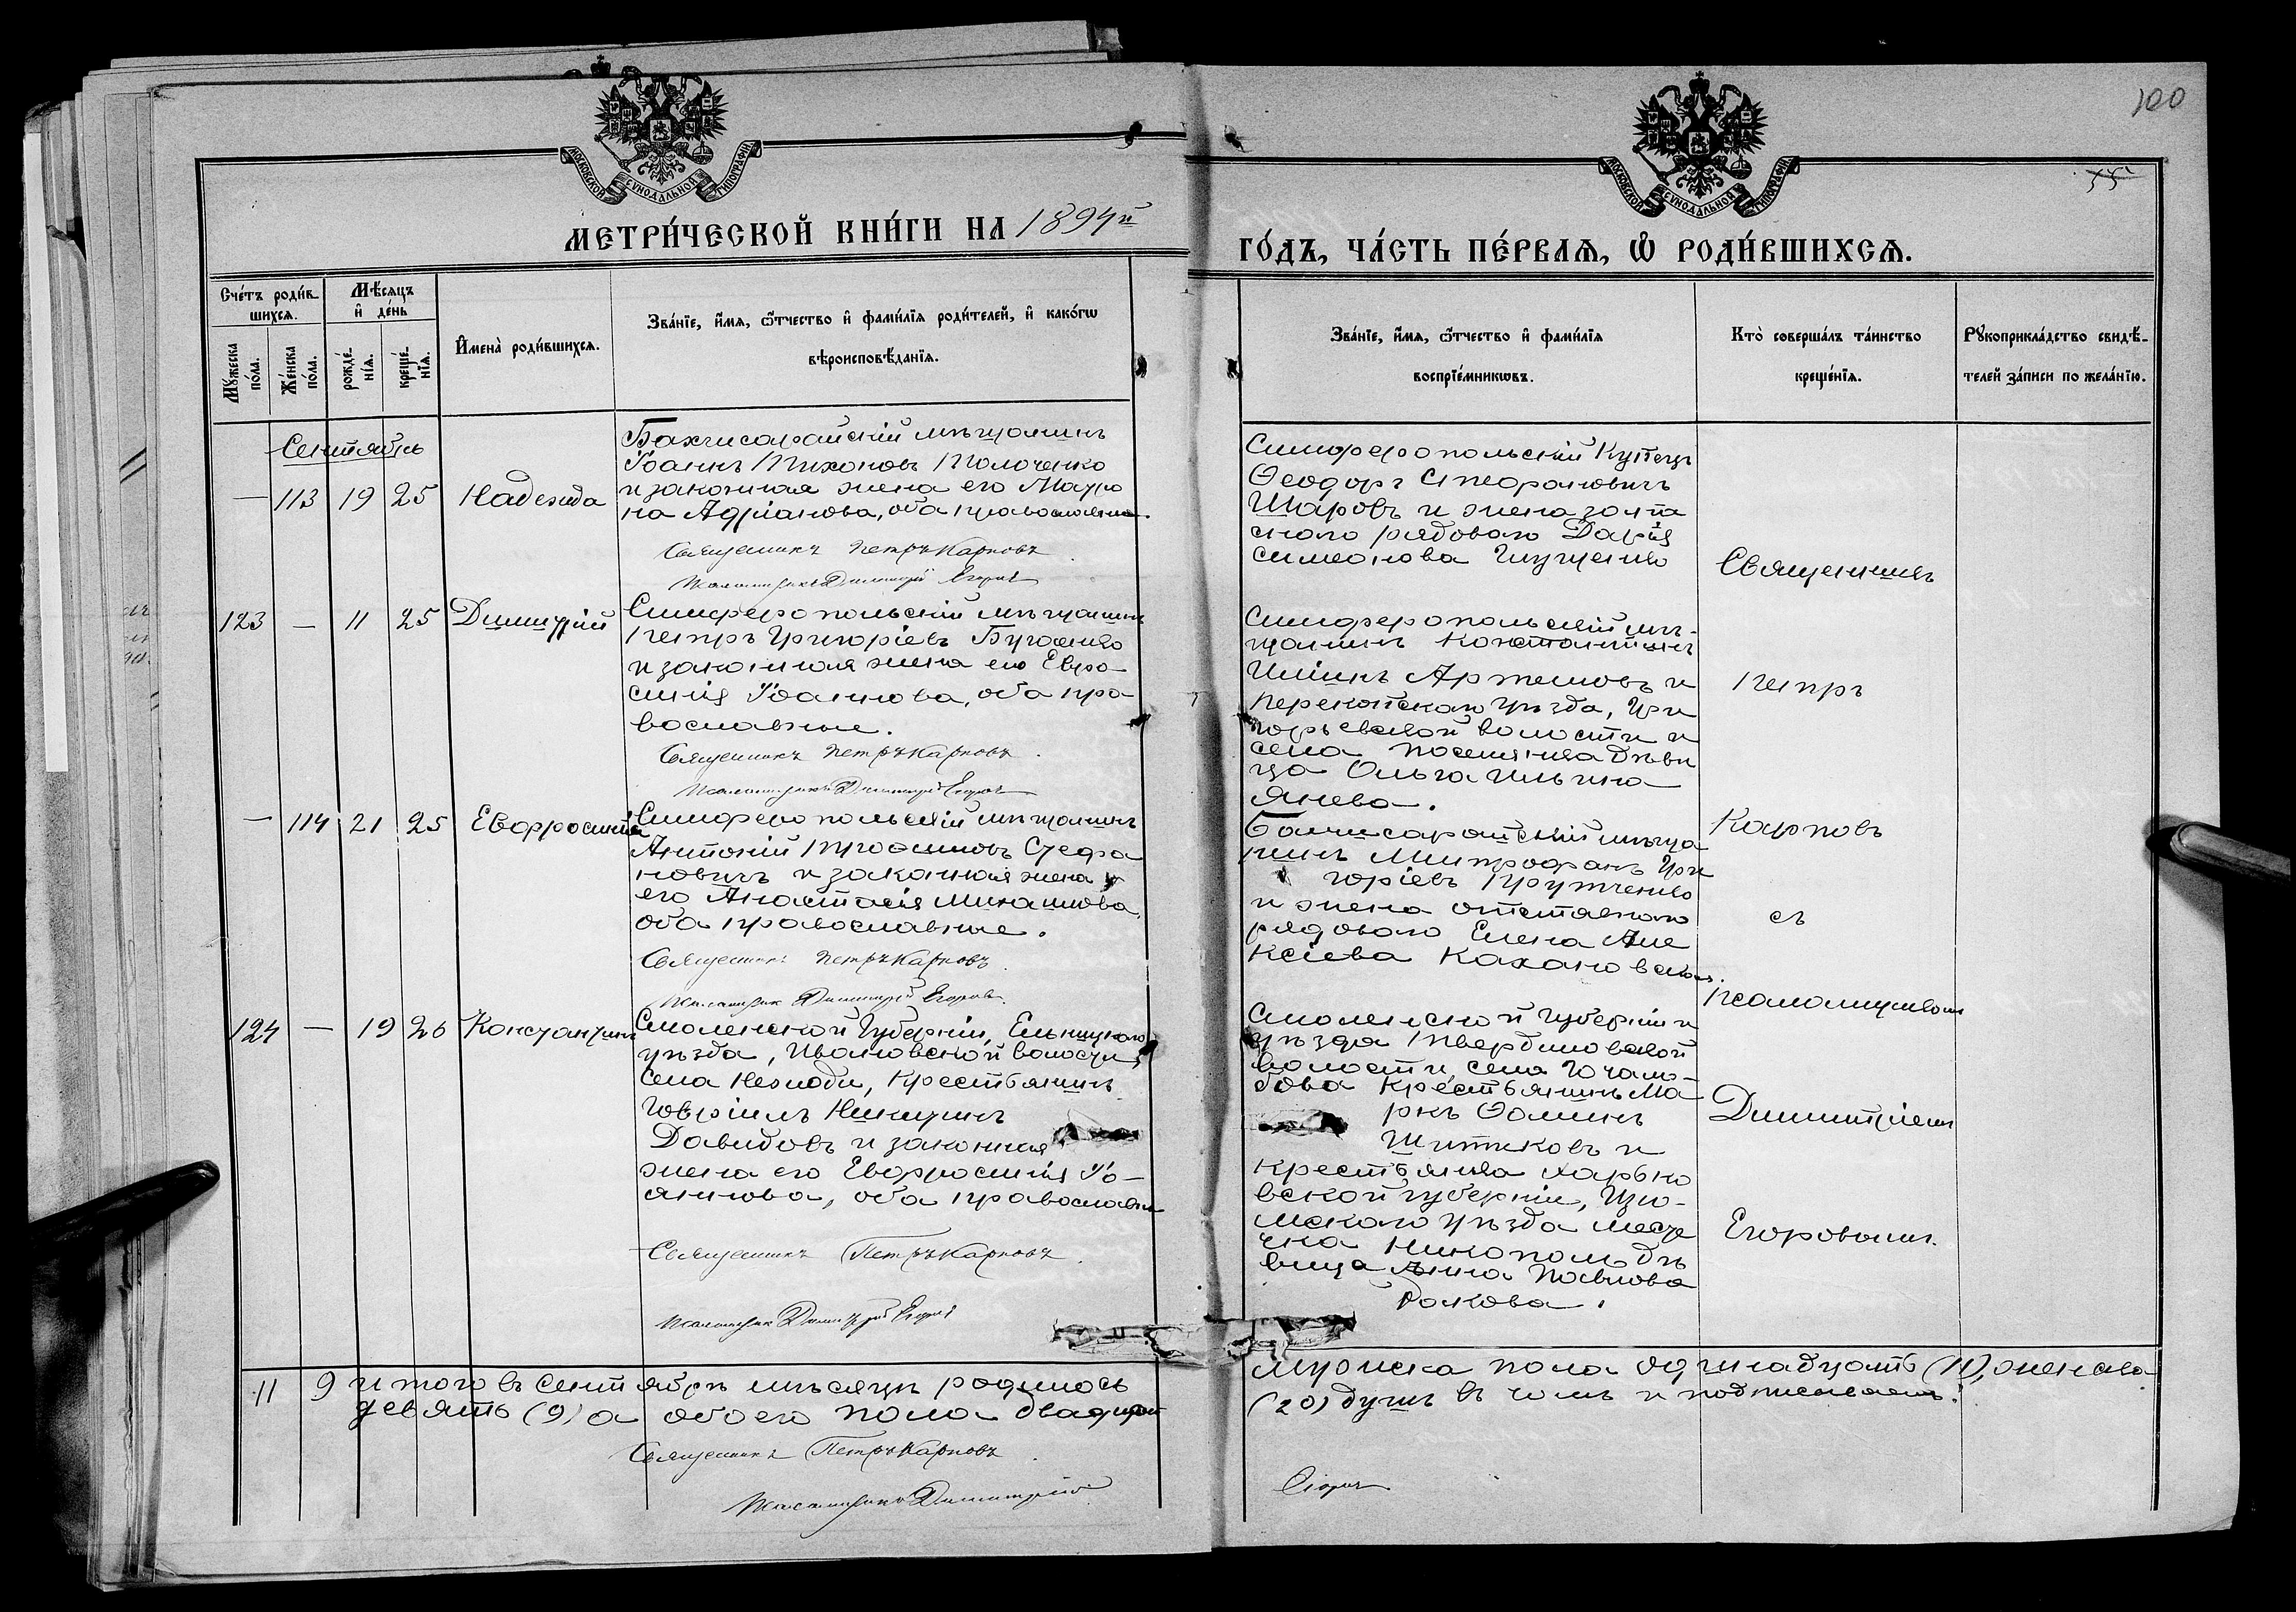 100
55
МЕТРИ́ЧЕСКОЙ КНИ́ГИ НА 1894й
ГО́ДЪ, ЧА́СТЬ ПЕ́РВАѦ, Ѡ РОДИ́ВШИХСѦ.
МОСКОВСКОЙ СѴНОДАЛЬНОЙ ТИПОГРАФІИ
МОСКОВСКОЙ СѴНОДАЛЬНОЙ ТИПОГРАФІИ
Сче́тъ роди́в-
шихсѧ.
Мꙋ́жеска по́ла.
Же́нска по́ла.
Мѣ́сѧцъ
и҆ де́нь
рожде́-нїѧ.
креще́-нїѧ.
И҆мена̀ роди́вшихсѧ.
Зва́нїе, и҆́мѧ, ѻ҆́тчество и҆ фами́лїѧ роди́телей, и҆ како́гѡ
вѣроисповѣ́данїѧ.
Зва́нїе, и҆́мѧ, ѻ҆́тчество и҆ фами́лїѧ
воспрїе́мникѡвъ.
Кто̀ соверша́лъ та́инство
креще́нїѧ.
Рꙋкоприкла́дство свидѣ́-
телей за́писи по жела́нїю.
Сентябрь
— 113 19 25 Надежда
Бахчисарайскій мѣщанинъ
Іоаннъ Тихоновъ Толоченко
и законная жена его Матро
на Адріанова, оба православные.
Священникъ Петръ Карповъ
Псаломщикъ Димитрій Егоровъ
Симферопольскій Купецъ
Ѳеодоръ Стефановичъ
Шаровъ и жена запа
снаго рядоваго Дарія
Симеонова
123 — 11 25 Димитрій
Симферопольскій мѣщанинъ
Петръ Григоріевъ Бугаенко
и законная жена его Евфро-
синія Іоаннова, оба пра-
вославные.
Священникъ Петръ Карповъ
Псаломщикъ Димитрій Егоровъ
Симферопольскій мѣ-
щанинъ Константинъ
Ильинъ Артемовъ и
Перекопскаго уѣзда, Гри
горьевской волости и
села поселянка дѣви
ца Ольга Ильина
Янева.
— 114 21 25 Евфросинія
Симферопольскій мѣщанинъ
Антоній Трофимовъ Стефа
новичъ и законная жена
его Анастасія Михайлова,
оба православные.
Священникъ Петръ Карповъ
Псаломщикъ Димитрій Егоровъ
Бахчисарайскій мѣща
нинъ Митрофанъ Гри
горіевъ Крутченко
и жена отставнаго
рядоваго Елена Але
ксіева Кахановская.
124 — 19 26 Константинъ
Смоленской Губерніи, Ельнинскаго
уѣзда, Ивановской волости,
села Незноди, крестьянинъ
Гавріилъ Никитинъ
Давидовъ и законная
жена его Евфросинія Іо-
аннова, оба православны
Священникъ Петръ Карповъ
Псаломщикъ Димитрій Егоровъ
Смоленской губерніи и
уѣзда Твердиловской
волости, села
крестьянинъ Ма
ркъ Ѳоминъ
Шитиковъ и
крестьянка Харько
вской губерніи, Изю-
мскаго уѣзда мѣсте
чка Никополь дѣ
вица Анна Павлова
Ракова.
Священникъ
Петръ
Карповъ
съ
Псаломщикомъ
Димитріемъ
Егоровымъ.
11 9 Итого въ сентябрѣ мѣсяцѣ родилось
мужска пола одинадцать (11), женска
девять (9) а обоего пола двадцать
(20) душъ въ чемъ и подписываемъ:
Священникъ Петръ Карповъ
Псаломщикъ Димитрій
Егоровъ